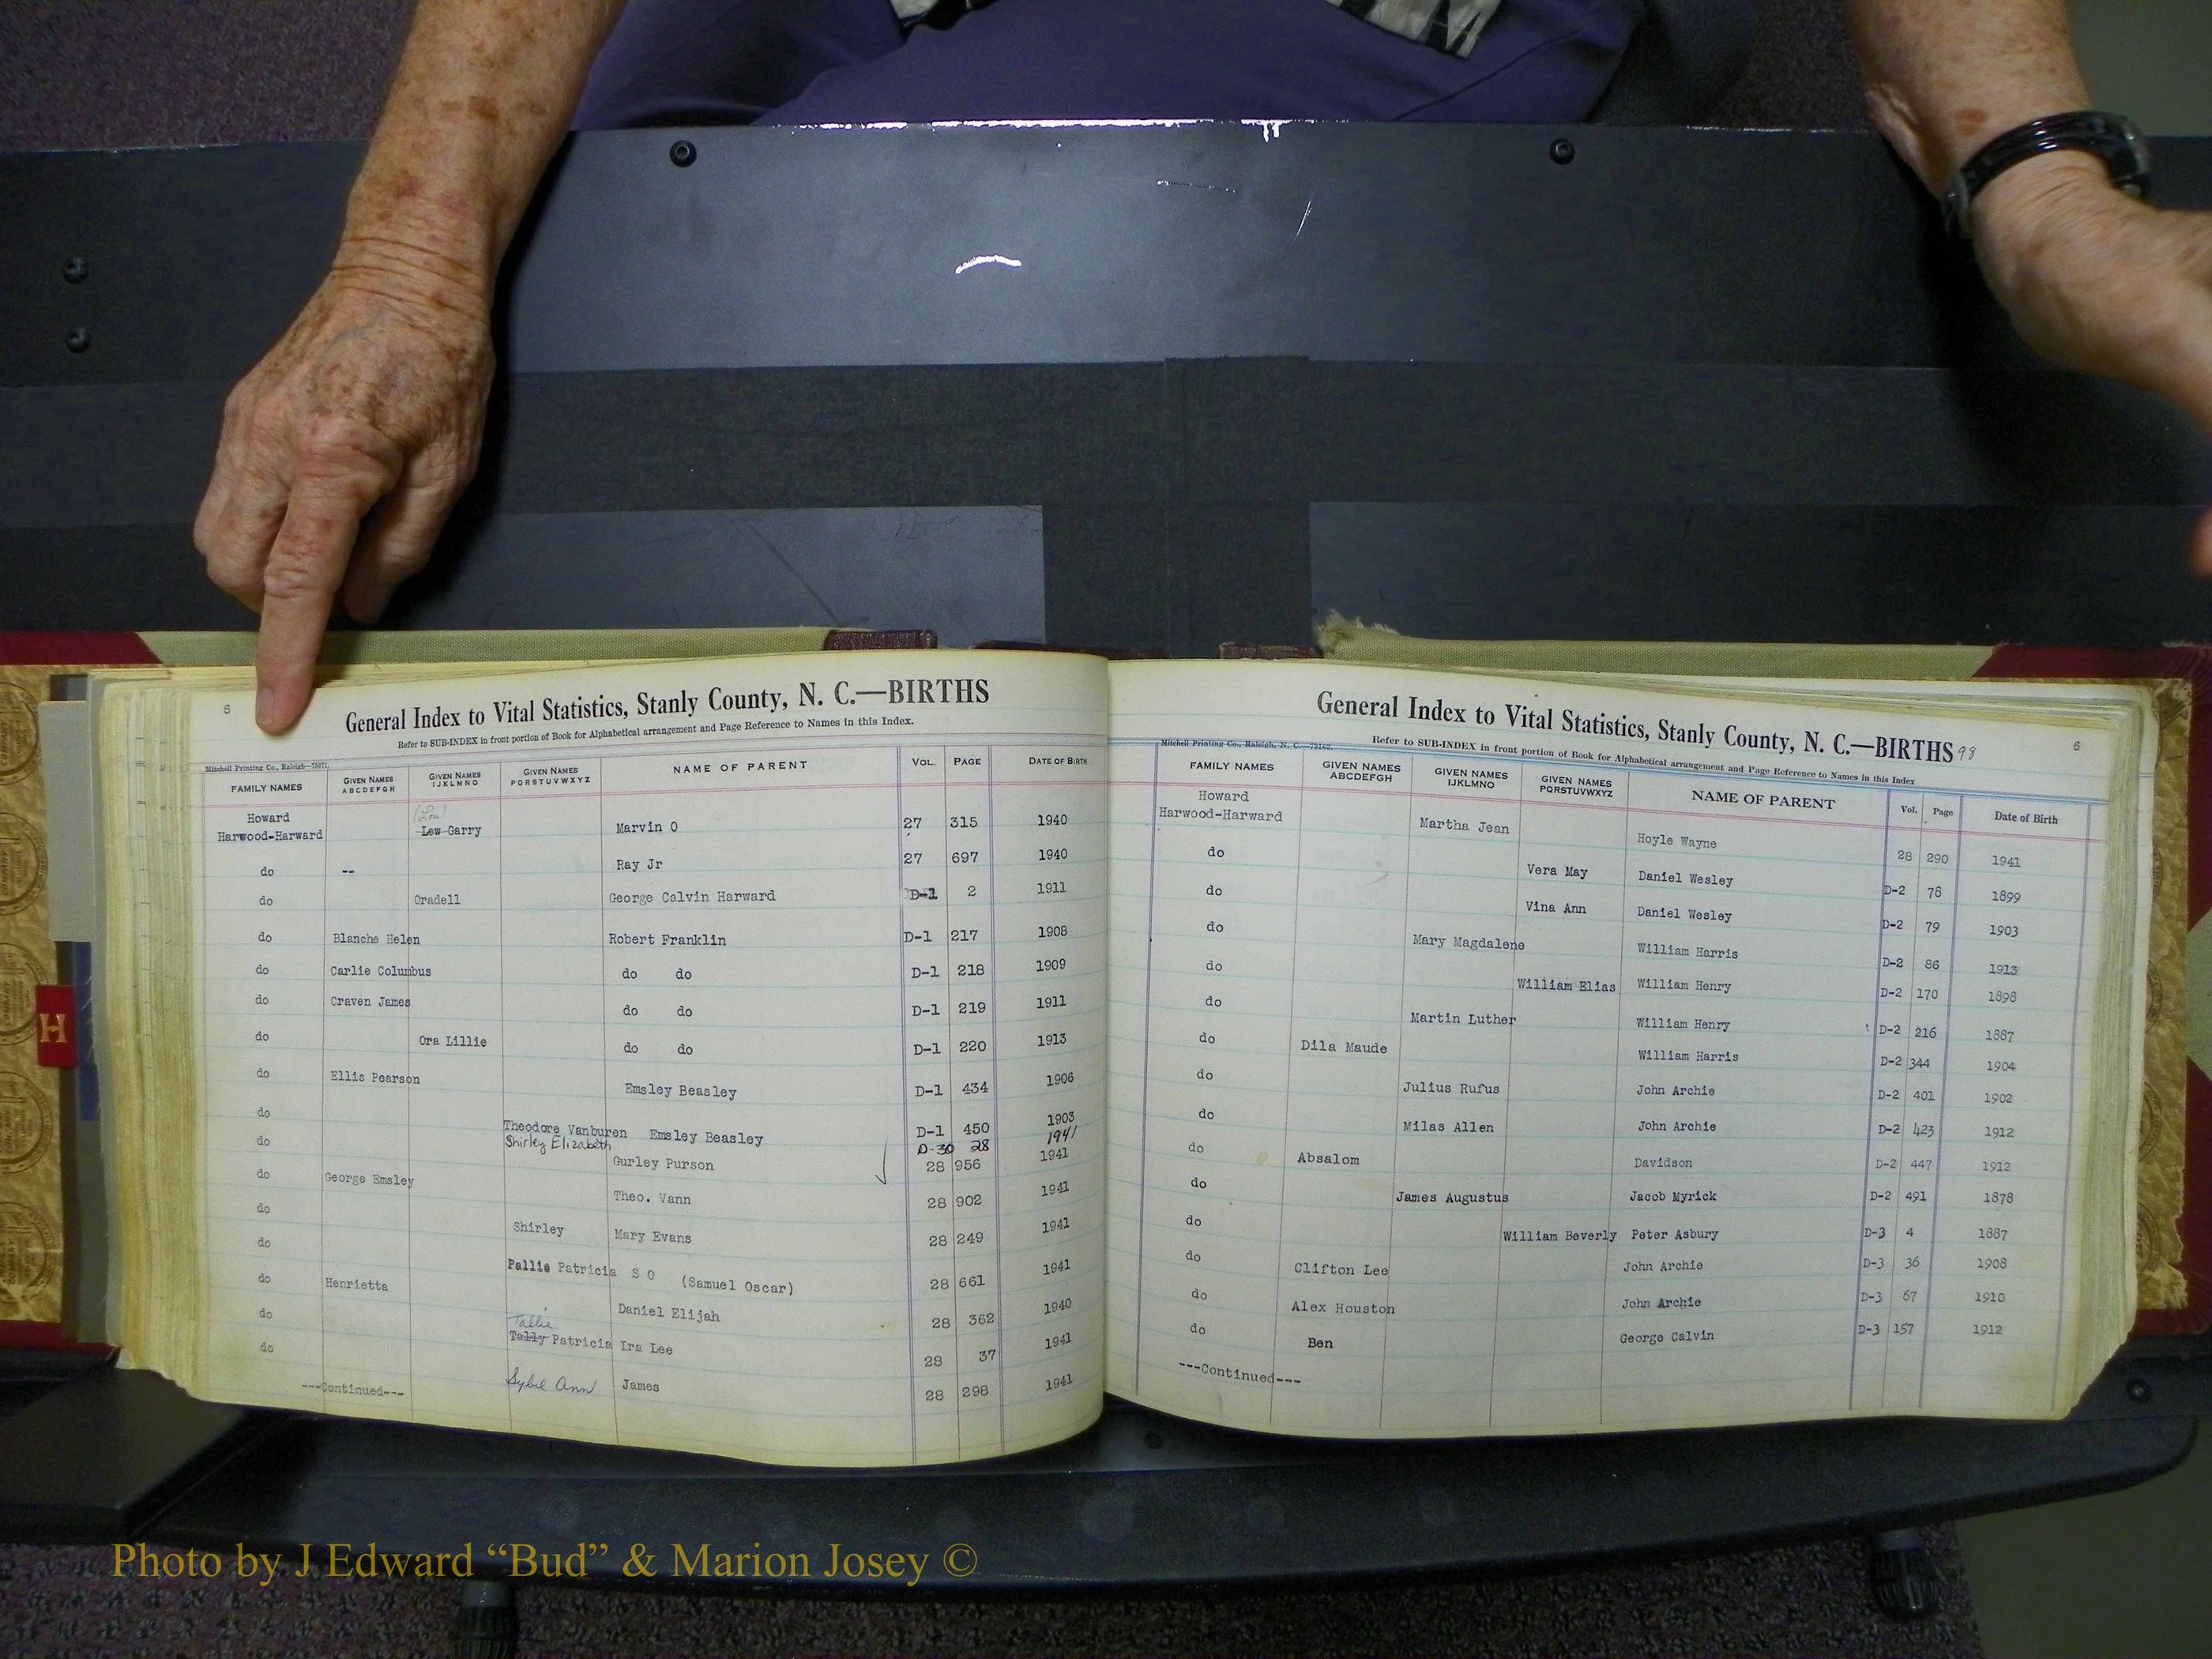 6
General Index to Vital Statistics, Stanly County, N. C.—BIRTHS
Refer to SUB-INDEX in front portion of Book for Alphabetical arrangement and Page Reference to Names in this Index.
Mitchell Printing Co., Raleigh—
FAMILY NAMES GIVEN NAMES ABCDEFGH GIVEN NAMES IJKLMNO GIVEN NAMES PQRSTUVWXYZ NAME OF PARENT VOL. PAGE DATE OF BIRTH
(Lou)
Howard
Harwood-Harward Lew Garry Marvin O 27 315 1940
do -- Ray Jr 27 697 1940
do Oradell George Calvin Harward D-1 2 1911
do Blanche Helen Robert Franklin D-1 217 1908
do Carlie Columbus do do D-1 218 1909
do Craven James do do D-1 219 1911
do Ora Lillie do do D-1 220 1913
do Ellis Pearson Emsley Beasley D-1 434 1906
do Theodore Vanburen Emsley Beasley D-1 450 1903
Shirley Elizabeth D-30 28 1941
do Gurley Purson 28 956 1941
do George Emsley Theo. Vann 28 902 1941
do Shirley Mary Evans 28 249 1941
do Pallie Patricia S O (Samuel Oscar) 28 661 1941
do Henrietta Daniel Elijah 28 362 1940
Tallie
do Tally Patricia Ira Lee 28 37 1941
do Sybil Ann James 28 298 1941
---Continued---
General Index to Vital Statistics, Stanly County, N. C.—BIRTHS 98
6
Refer to SUB-INDEX in front portion of Book for Alphabetical arrangement and Page Reference to Names in this Index
Mitchell Printing Co., Raleigh, N. C.—
FAMILY NAMES GIVEN NAMES ABCDEFGH GIVEN NAMES IJKLMNO GIVEN NAMES PQRSTUVWXYZ NAME OF PARENT Vol. Page Date of Birth
Howard
Harwood-Harward Martha Jean Hoyle Wayne 28 290 1941
do Vera May Daniel Wesley D-2 78 1899
do Vina Ann Daniel Wesley D-2 79 1903
do Mary Magdalene William Harris D-2 86 1913
do William Elias William Henry D-2 170 1898
do Martin Luther William Henry D-2 216 1887
do Dila Maude William Harris D-2 344 1904
do Julius Rufus John Archie D-2 401 1902
do Milas Allen John Archie D-2 423 1912
do Absalom Davidson D-2 447 1912
do James Augustus Jacob Myrick D-2 491 1878
do William Beverly Peter Asbury D-3 4 1887
do Clifton Lee John Archie D-3 36 1908
do Alex Houston John Archie D-3 67 1910
do Ben George Calvin D-3 157 1912
---Continued---
H
Photo by J Edward “Bud” & Marion Josey ©